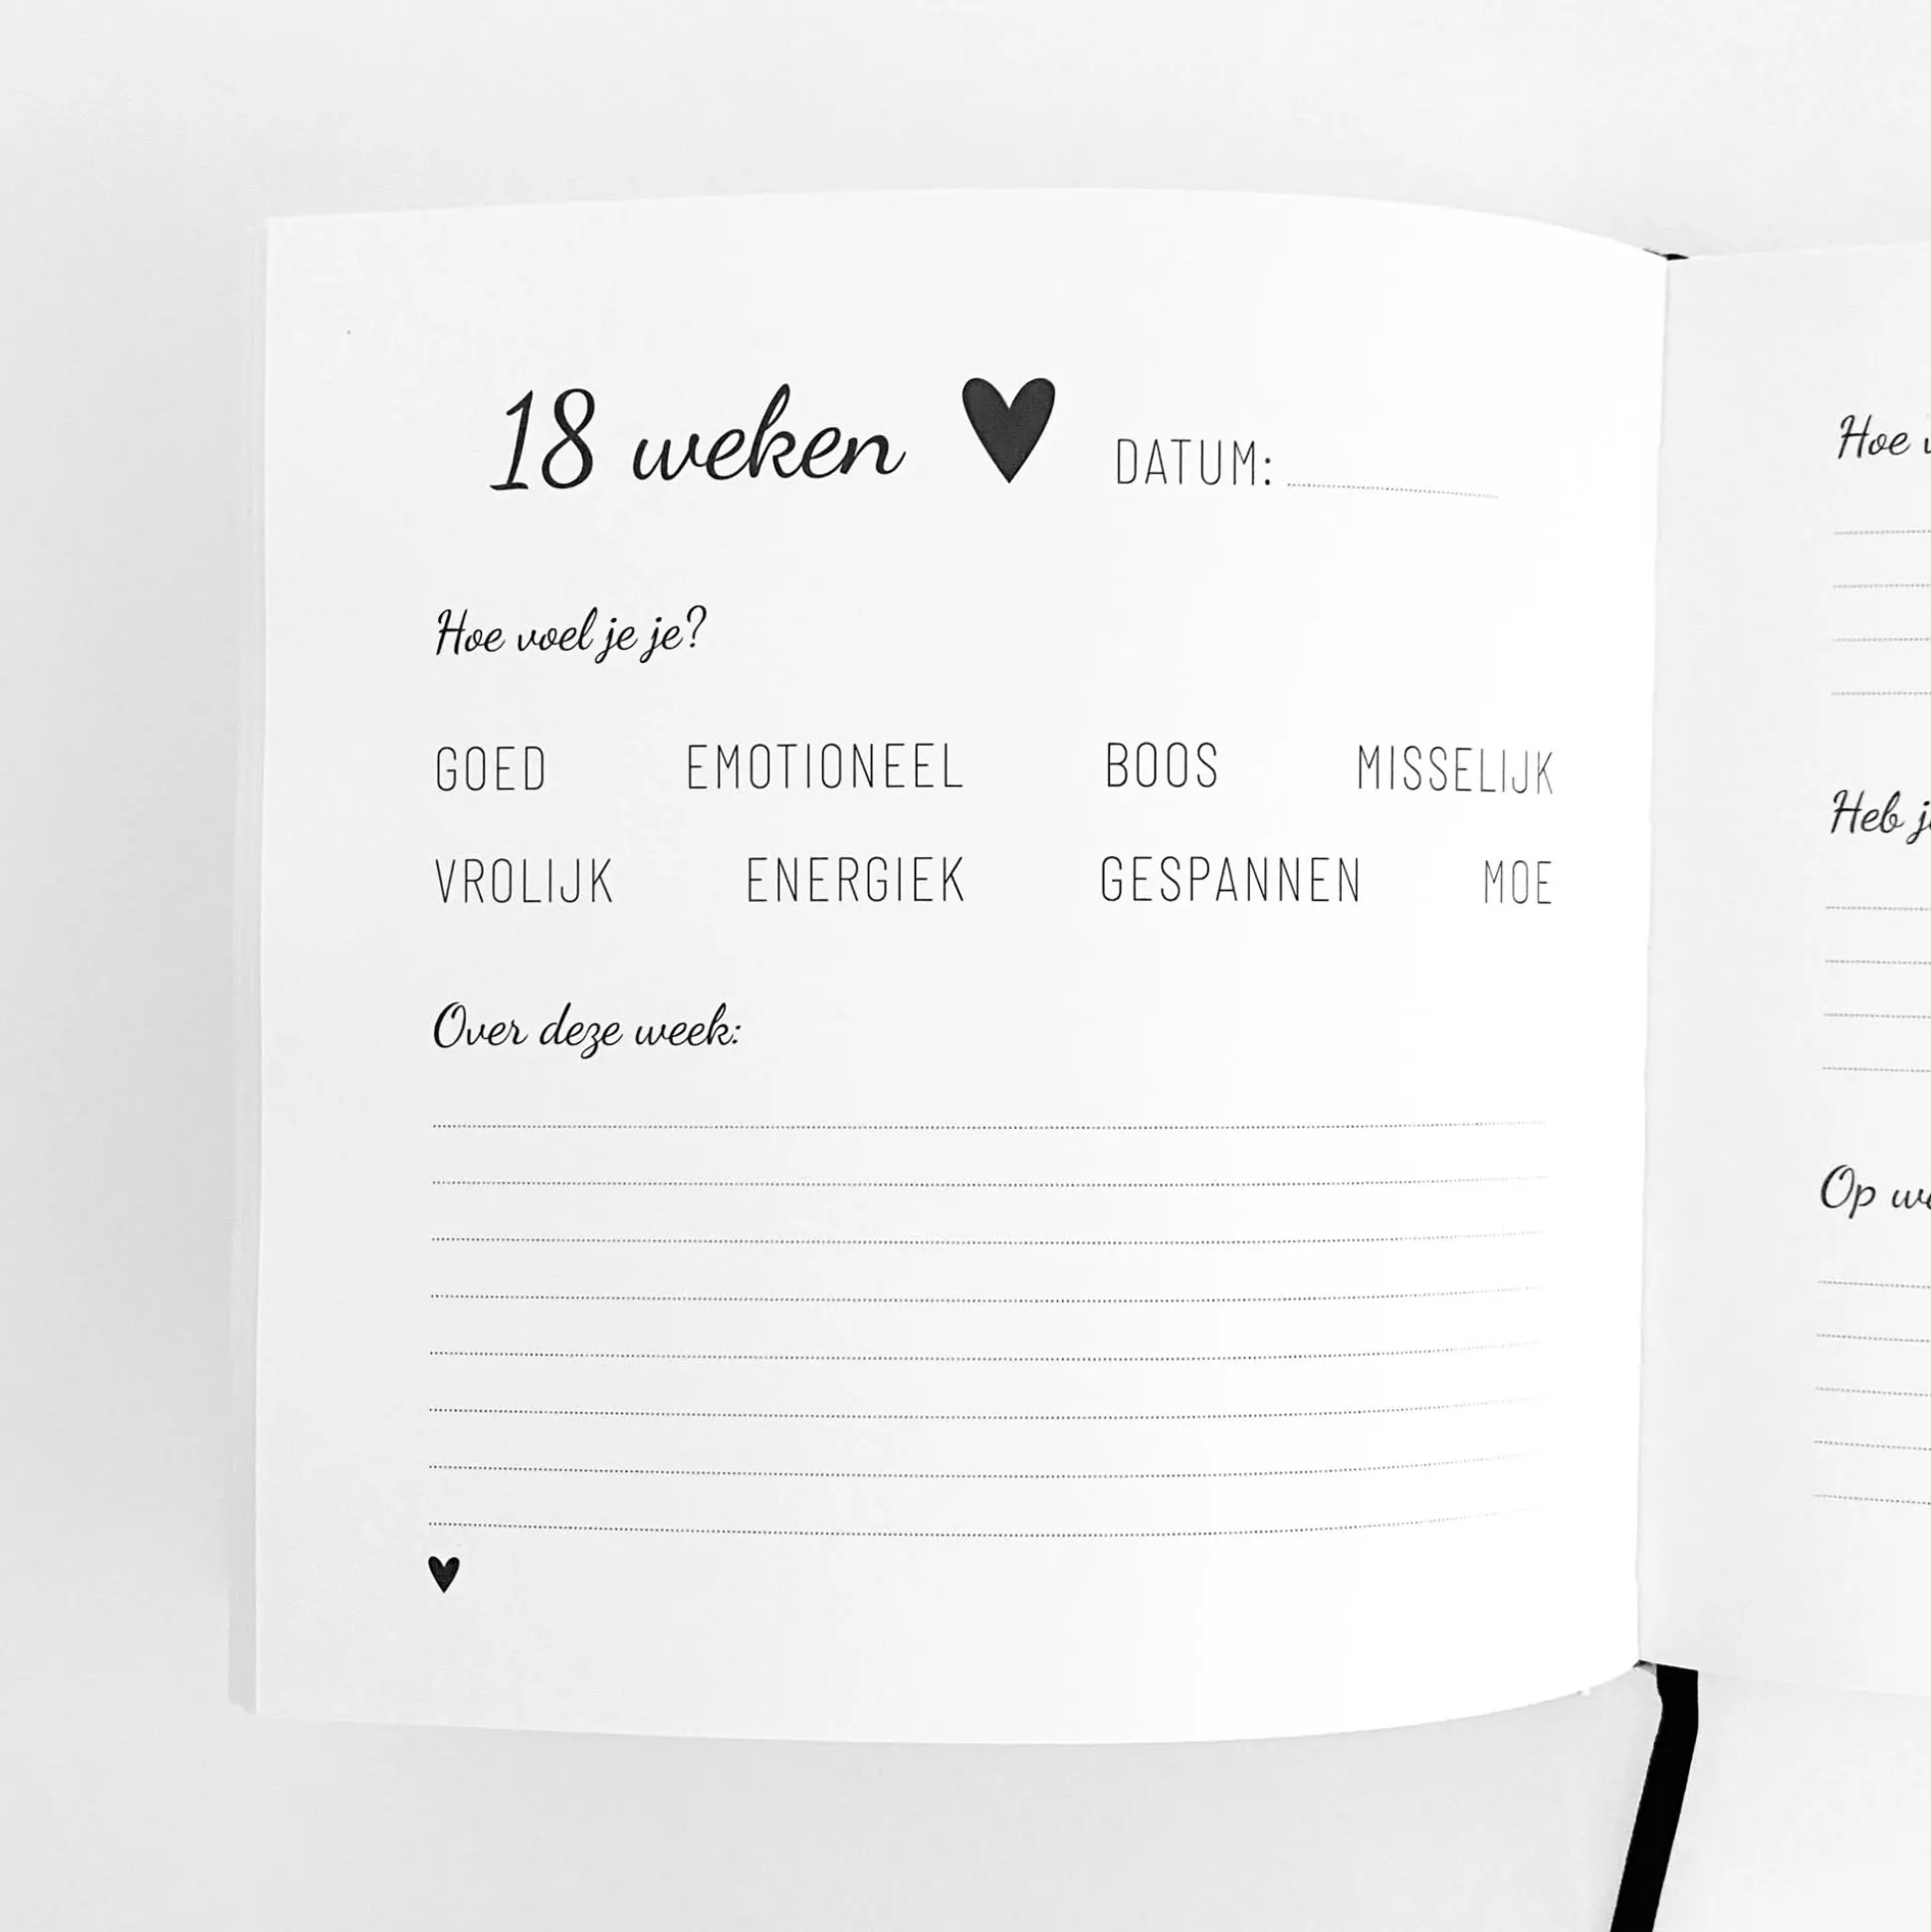 18 weken DATUM:
Hoe voel je je?
GOED EMOTIONEEL BOOS MISSELIJK
VROLIJK ENERGIEK GESPANNEN MOE
Over deze week:
Hoe
Heb
Op